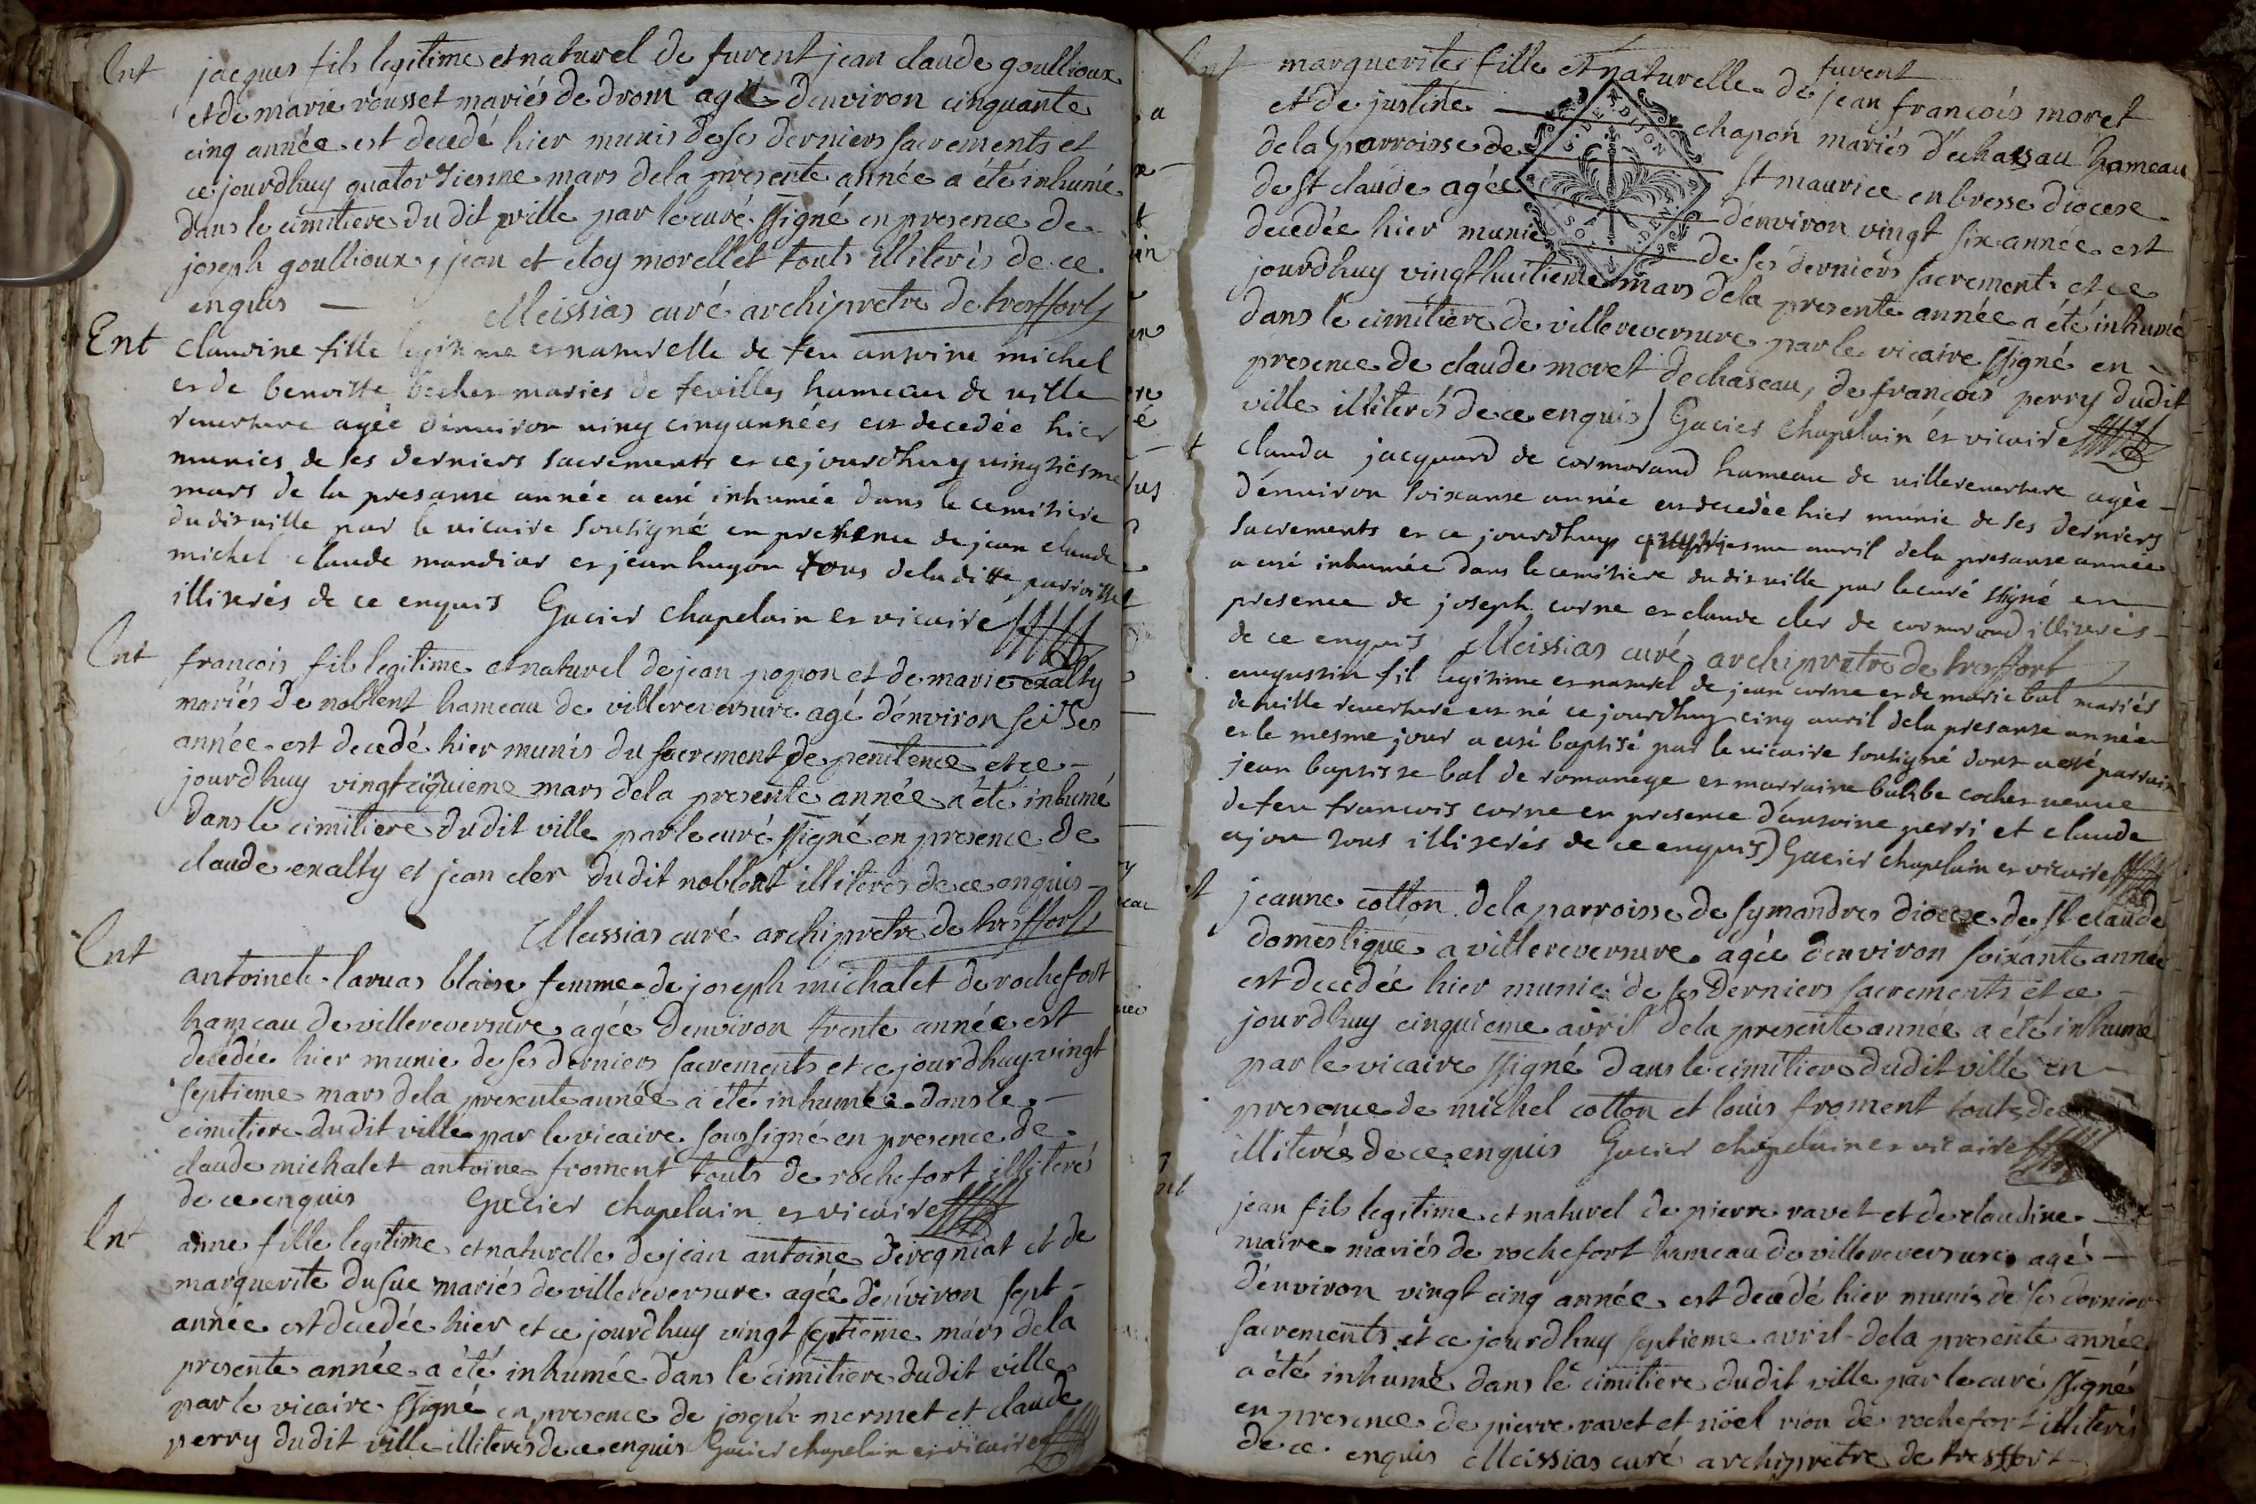 Ent jacques fils legitime et naturel de furent jean claude goullioux
et de marie rousset mariés de drom agé denviron cinquante
cinq année est decedé hier munis de ses derniers sacrements et
ce jourdhuy quatorzieme mars dela présente année a été inhumé
dans le cimitiere du dit ville par le curé ssigné en presence de
joseph goullioux, jean et eloy morellet touts illiterés de ce
enquis — Meissias curé archipretre de tresffort
Ent Claudine fille legitime et naturelle de feu antoine michel
et de benoitte becher mariés de feuilles hameau de ville
reuersure agée d'enuiron uing cinq années est decedée hier
munies de ses derniers sacrements et ce jourdhuy uingtiesme
mars de la presante année a eté inhumée dans le cemitiere
dudit uille par le uicaire soutigné en presence de jean claude
michel claude mandiar et jean hugon tous de la ditte parroisse
illiterés de ce enquis Gacier chapelain et uicaire
Ent francois fils legitime et naturel de jean popon et de marie exalty
mariés de noblent hameau de villereversure agé d'environ seizes
année est decedé hier munis du sacrement de penitence et ce
jourdhuy vingt ciquieme mars dela presente année a été inhumé
dans le cimitiere dudit ville par le curé ssigné en presence de
claude exalty et jean cler dudit noblent illiterés de ce enquis
Meissias curé archipretre de tresffort
Ent
antoinete laruas blaise femme de joseph michalet de rochefort
hameau de villereversure agée denviron trente année est
decédée hier munie de ses derniers sacrements et ce jourdhuy vingt
septieme mars dela presente année a été inhumée dans le
cimitiere dudit ville par le vicaire soussigné en presence de
claude michalet antoine froment touts de rochefort illiterés
de ce enquis Gacier chapelain et vicaire
Ent anne fille legitime et naturelle de jean antoine deregniat et de
marguerite dusue mariés de villereversure agée d'environ sept
année est decedée hier et ce jourdhuy vingt septieme mars dela
presente année a été inhumée dans le cimitiere dudit ville
par le vicaire ssigné en presence de joseph mermet et claude
perry dudit ville illiterés de ce enquis Gacier chapelain et vicaire
Ent marguerite fille et naturelle de furent jean francois moret
et de justine chapon mariés d'echassau hameau
de la parroisse de st maurice en bresse diocese
de st claude agée d'environ vingt six année est
decedée hier munie de ses derniers sacrement et ce
jourdhuy vingt huitieme mars dela presente année a été inhumé
dans le cimitiere de villereversure par le vicaire ssigné en
presence de claude moret dechaseau, de francois perry dudit
ville illiterés de ce enquis) Gacier chapelain et vicaire
clauda jacquard de cormorand hameau de uillereuersure agée
d'enuiron soixante année est decedée hier munie de ses derniers
sacrements et ce jourdhuy auril dela presante année
a eté inhumée dans le cemitiere dudit uille par le curé ssigné en
presence de joseph corne et claude cler de cormorand illiterés
de ce enquis Meissias curé archipretre de tresffort
augustin fil legitime et naturel de jean corne et de marie bal mariés
de uille reuersure est né ce jourdhuy cinq auril dela presante année
et le mesme jour a eté baptisé par le uicaire soutigné dont a eté parrain
jean baptiste bal de romanege et marraine balbe cocher ueuue
de feu francois corne en presence d'antoine perri et claude
ajon tous illiterés de ce enquis) Gacier chapelain et uicaire
jeanne cotton dela parroisse de symandres diocese de st claude
domestique a villereversure agée d'environ soixante année
est decedée hier munie de ses derniers sacrements et ce
jourdhuy cinquieme avril dela presente année a été inhumé
par le vicaire ssigné dans le cimitiere dudit ville en
presence de michel cotton et louis froment touts
illiterés de ce enquis Gacier chapelain et vicaire
jean fils legitime et naturel de pierre ravet et de claudine
maire mariés de rochefort hameau de villereversure agé
d'environ vingt cinq année est decedé hier munis de ses dernier
sacrements et ce jourdhuy septieme avril dela presente année
a été inhumé dans le cimitiere dudit ville par le curé ssigné
en presence de pierre ravet et nöel rion de rochefort illiterés
de ce enquis Meissias curé archipretre de tresffort